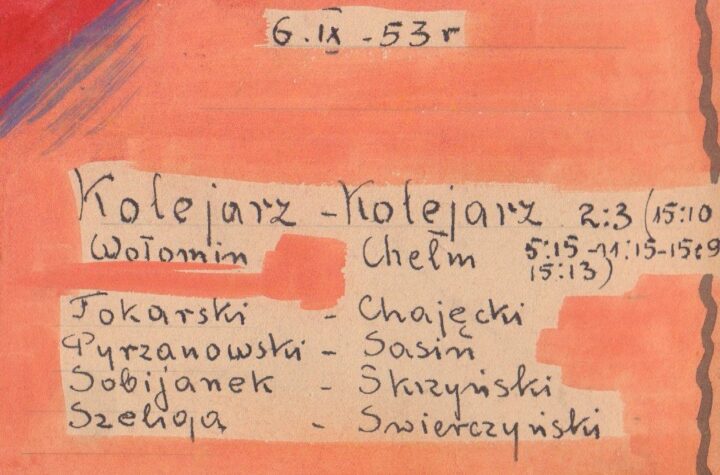 6.IX - 53 r
Kolejarz - Kolejarz 2:3 (15:10
Wołomin Chełm 5:15 - 11:15 - 15:9
15:13)
Tokarski - Chajęcki
Pyrzanowski - Sasin
Sobijanek - Skrzyński
Szeliga - Swierczyński